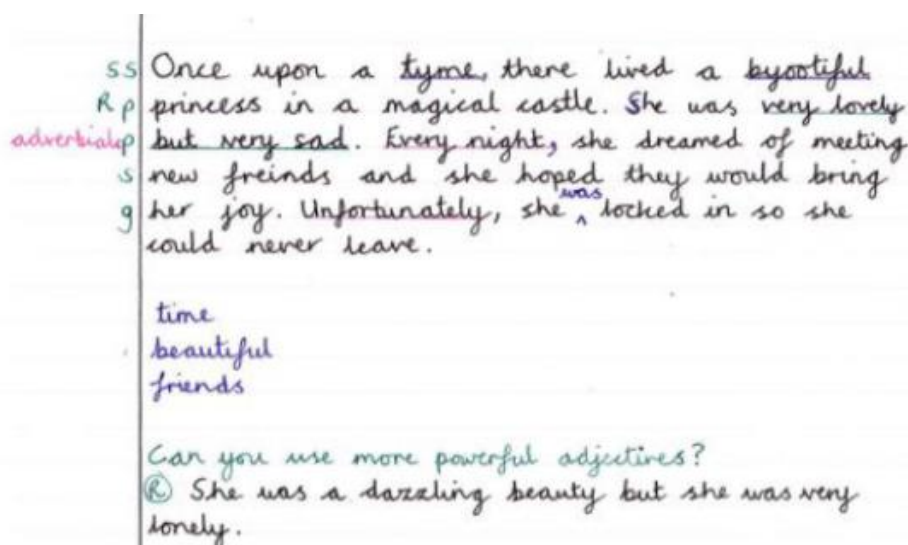 ss Once upon a tyme, there lived a byootiful
R p princess in a magical castle. She was very lovely
adverbial p but very sad. Every night, she dreamed of meeting
s new freinds and she hoped they would bring
was
g her joy. Unfortunately, she ^ locked in so she
could never leave.
time
beautiful
friends
Can you use more powerful adjectives?
R She was a dazzling beauty but she was very
lonely.